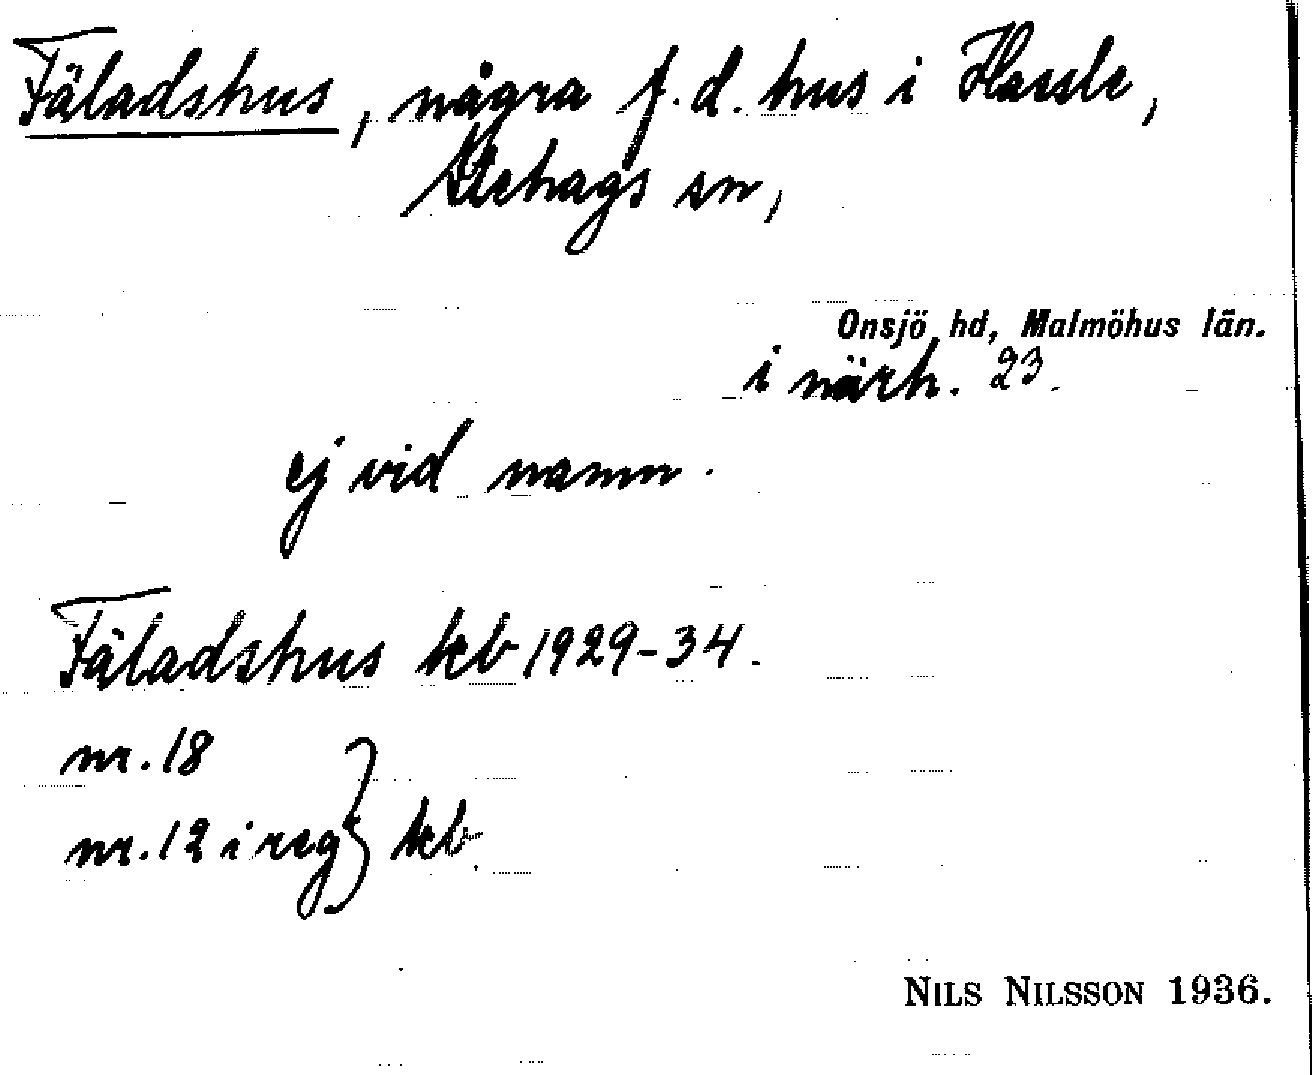 Fäladshus, några f. d. hus i Hassle,
Stehags sn,
Onsjö hd, Malmöhus län.
i närh. 23.
ej vid namn.
Fäladshus kb 1929-34.
nr. 18
nr. 12 i reg } kb.
NILS NILSSON 1936.